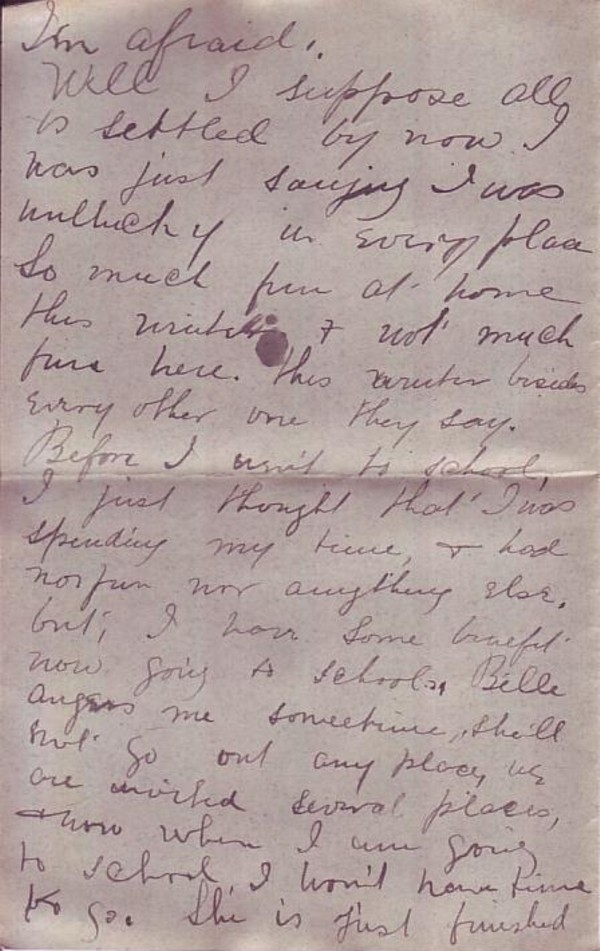 I'm afraid.
Well I suppose all
is settled by now I
was just saying I was
unlucky in every place
So much fun at home
this winter & not much
fun here. this winter besides
every other one they say.
Before I went to school,
I just thought that I was
spending my time, & had
no fun nor anything else.
but, I have some benefit
now going to school. Belle
angers me sometime, she'll
not go out any place, we
are invited several places,
& now when I am going
to school, I won't have time
to go. She is just finished